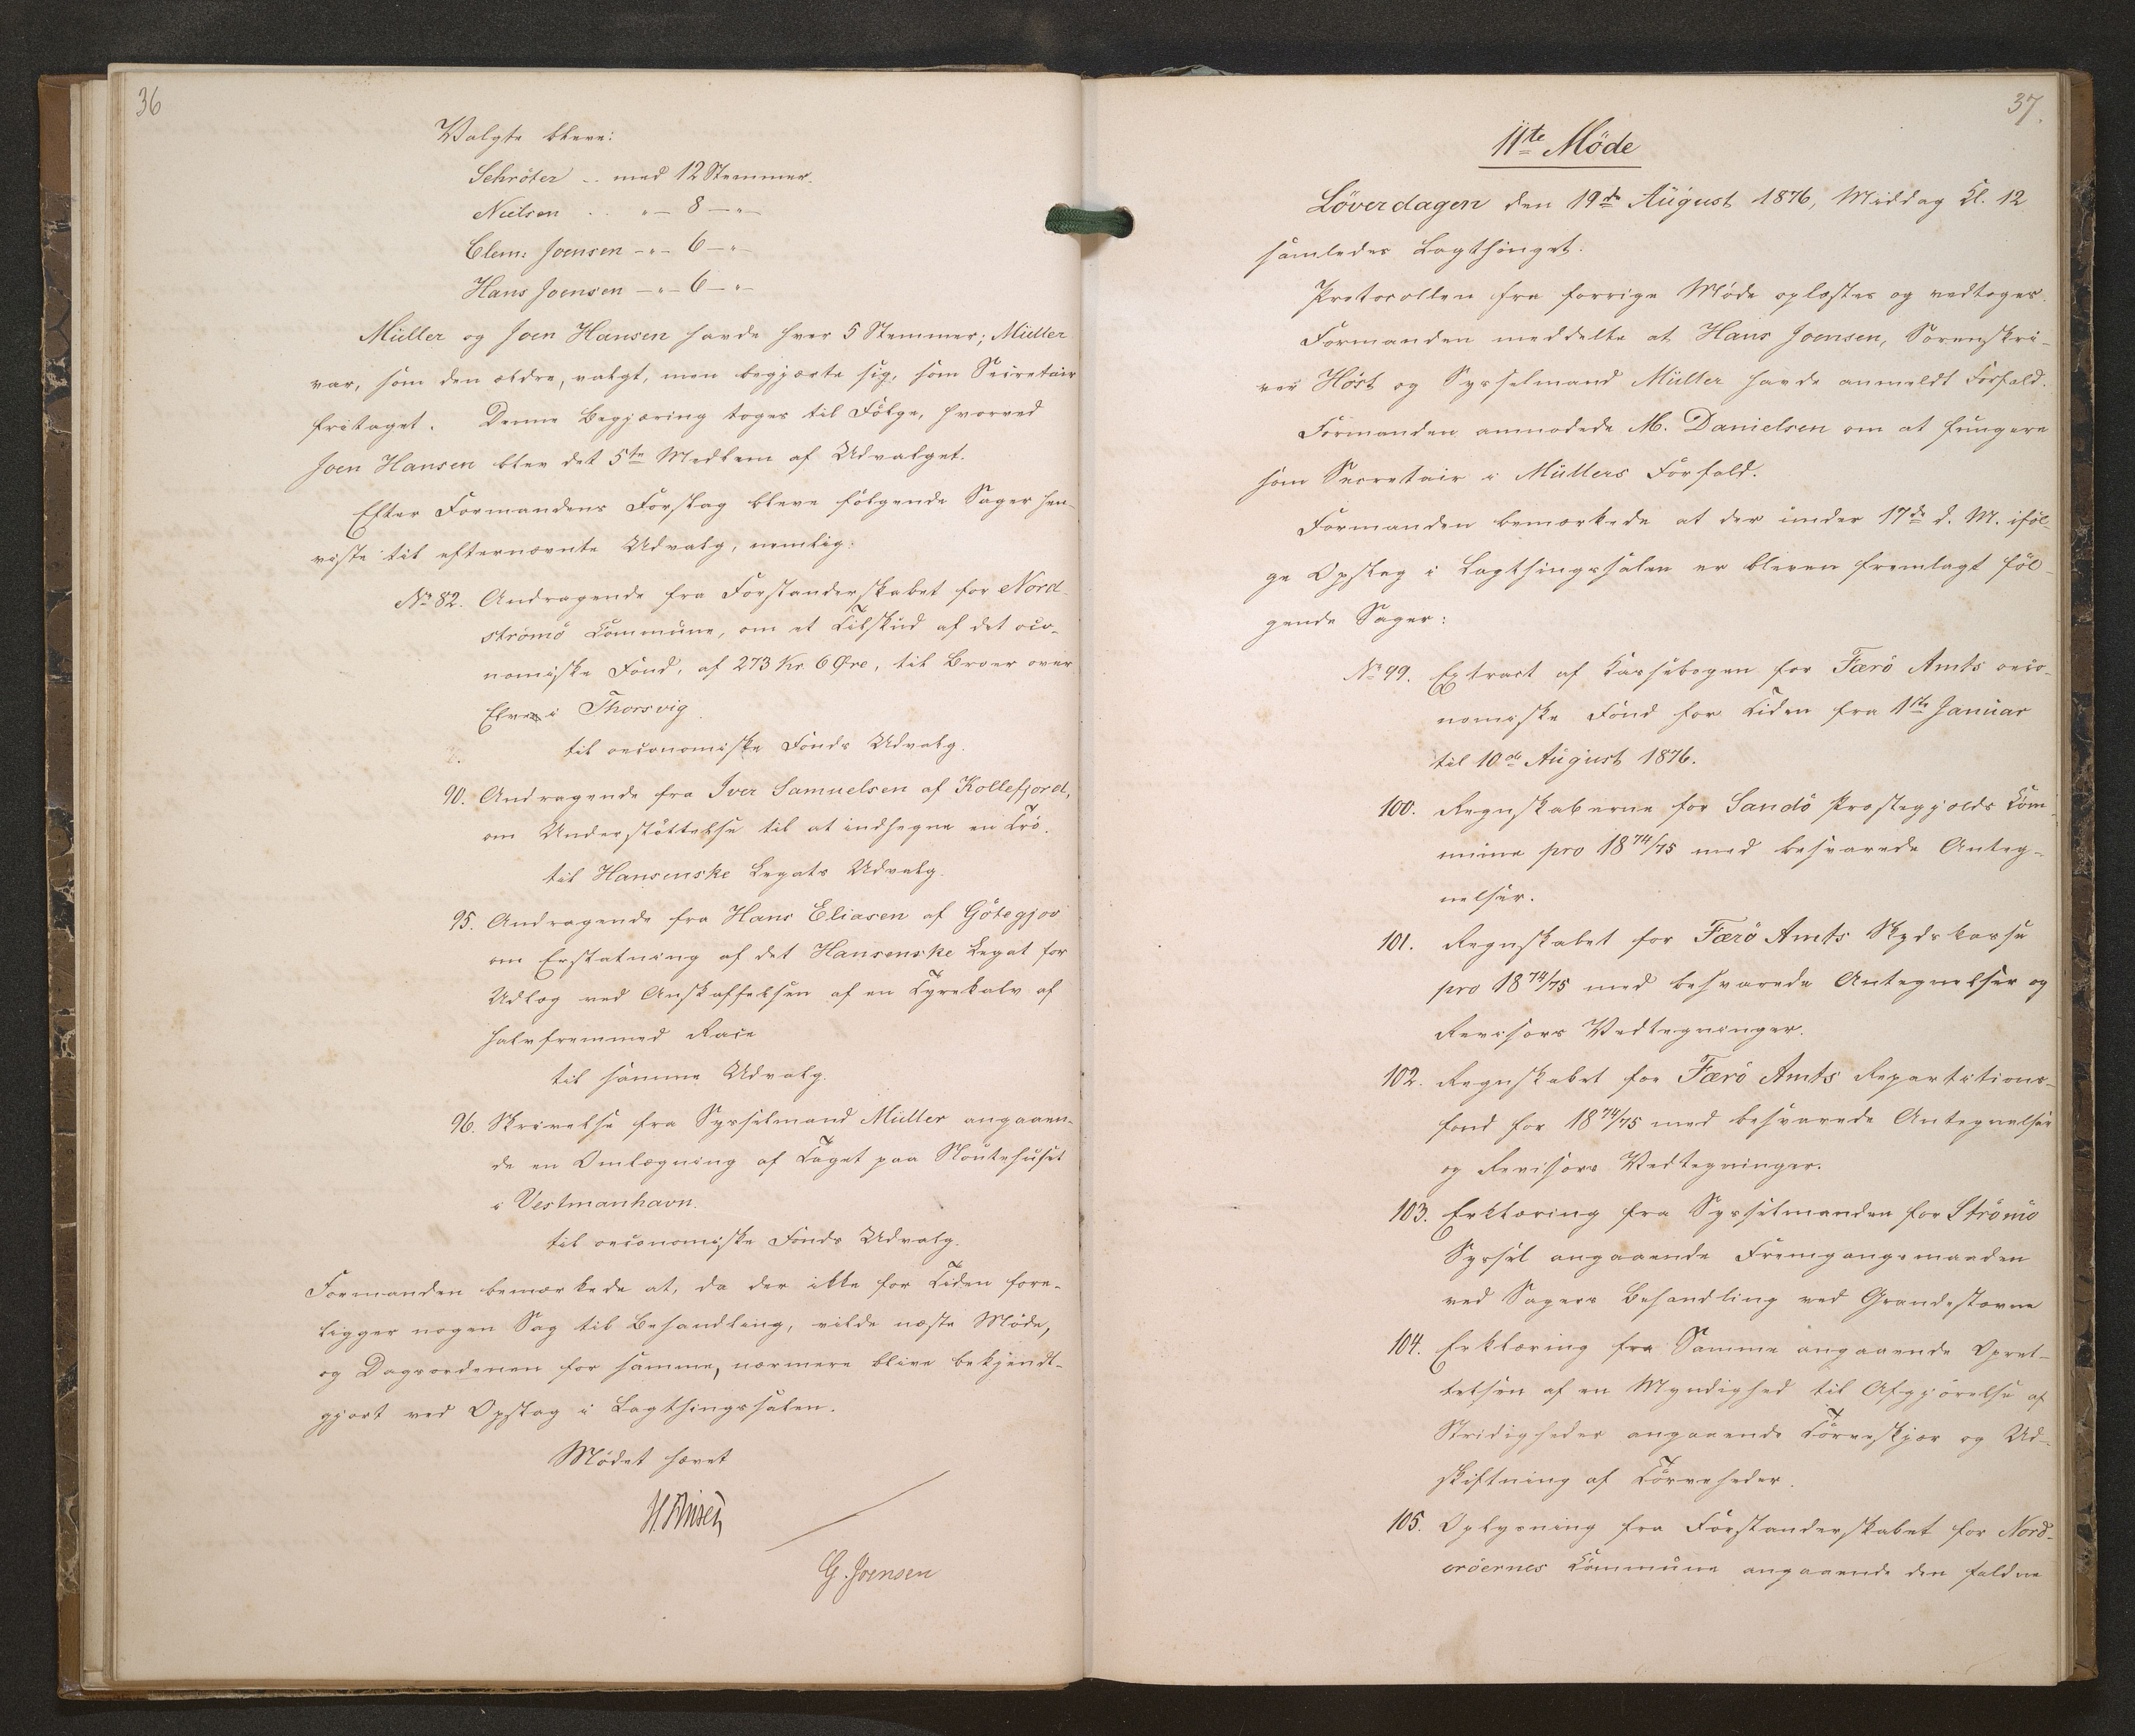 36
Valgte bleve:
Schröter .. med 12 Stemmer.
Nielsen .. " — 8 — " —
Clem: Joensen — " — 6 — " —
Hans Joensen — " — 6 — " —
Müller og Joen Hansen havde hver 5 Stemmer; Müller
var, som den ældre, valgt, men begjærte sig, som Secretair
fritaget. Denne Begjæring toges til Følge, hvorved
Joen Hansen blev det 5te Medlem af Udvalget.
Efter Formandens Forslag bleve følgende Sager hen-
viste til efternævnte Udvalg, nemlig:
No 82. Andragende fra Forstanderskabet for Nord-
strömö Commune, om et Tilskud af det oco-
nomiske Fond, af 273 Kr. 6 Øre, til Broer over
Elve i Thorsvig
til oeconomiske Fonds Udvalg.
90. Andragende fra Iver Samuelsen af Kollefjord,
om Understöttelse til at indhegne en Trö.
til Hansenske Legats Udvalg.
95. Andragende fra Hans Eliasen af Götegjov
om Erstatning af det Hansenske Legat for
Udlæg ved Anskaffelsen af en Tyrekalv af
halvfremmed Race
til samme Udvalg.
96. Skrivelse fra Sysselmand Müller angaaen-
de en Omlægning af Taget paa Skoutehuset
i Vestmanhavn.
til oeconomiske Fonds Udvalg.
Formanden bemærkede at, da der ikke for Tiden fore-
ligger nogen Sag til Behandling, vilde næste Möde,
og Dagsordenen for samme, nærmere blive bekjendt-
gjort ved Opslag i Lagthingssalen.
Mödet hævet
H. Finsen
G. Joensen
37.
11te Möde
Löverdagen den 19de August 1876, Middag Kl. 12
samledes Lagthinget.
Protocollen fra forrige Möde oplæstes og vedtoges.
Formanden meddelte at Hans Joensen, Sorenskri-
ver Höst og Sysselmand Müller havde anmeldt Forfald.
Formanden anmodede M. Danielsen om at fungere
som Secretair i Müllers Forfald.
Formanden bemærkede at der under 17de d. M. iföl-
ge Opslag i Lagthingssalen er bleven fremlagt föl-
gende Sager:
No 99. Extract af Kassebogen for Færö Amts oeco-
nomiske Fond for Tiden fra 1ste Januar
til 10de August 1876.
100. Regnskaberne for Sandö Præstegjelds Com-
mune pro 1874/75 med besvarede Anteg-
nelser.
101. Regnskabet for Færö Amts Skydskasse
pro 1874/75 med besvarede Antegnelser og
Revisors Vedtegninger.
102. Regnskabet for Færö Amts Repartitions-
fond for 1874/75 med besvarede Antegnelser
og Revisors Vedtegninger.
103. Erklæring fra Sysselmanden for Strömö
Syssel angaaende Fremgangsmaaden
ved Sagers Behandling ved Grandestevne
104. Erklæring fra Samme angaaende Opret-
telsen af en Myndighed til Afgjörelse af
Stridigheder angaaende Törveskjær og Ud-
skiftning af Törveheder.
105. Oplysning fra Forstanderskabet for Nord-
eröernes Commune angaaende den faldne